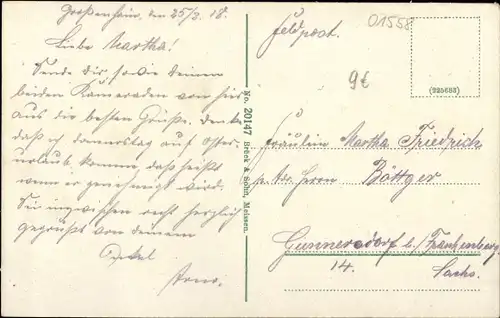 Großenhain, den 25/2. 18.
Liebe Martha!
Sende dir, sowie deinen
beiden Kameraden von hier
aus die besten Grüße. Denke
daß ich Donnerstag auf Oster-
urlaub komme, daß heißt
wenn er genehmigt wird.
Sei inzwischen recht herzlich
gegrüßt von deinem
Onkel
Arno.
No. 20147 Brück & Sohn, Meissen.
Feldpost.
01558
9€
(225683)
Fräulein Martha Friedrich
p. Adr. Herrn Böttger
Gunnersdorf b/Frankenberg
14. Sachs.